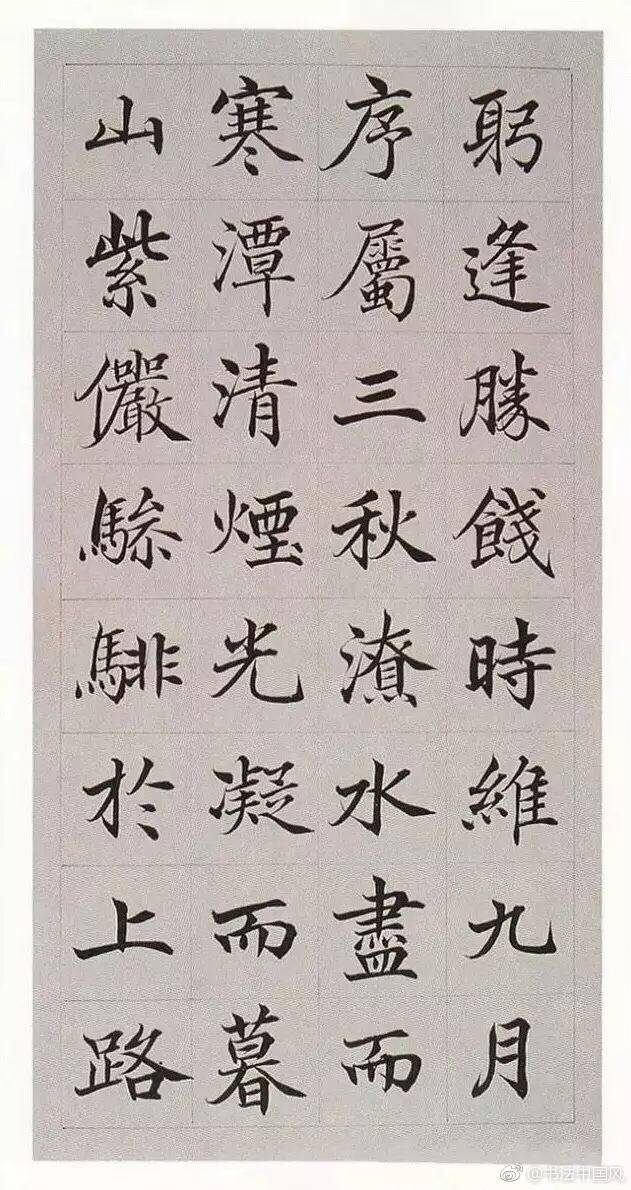 躬逢勝餞時維九月
序屬三秋潦水盡而
寒潭清煙光凝而暮
山紫儼驂騑於上路
@书法中国风